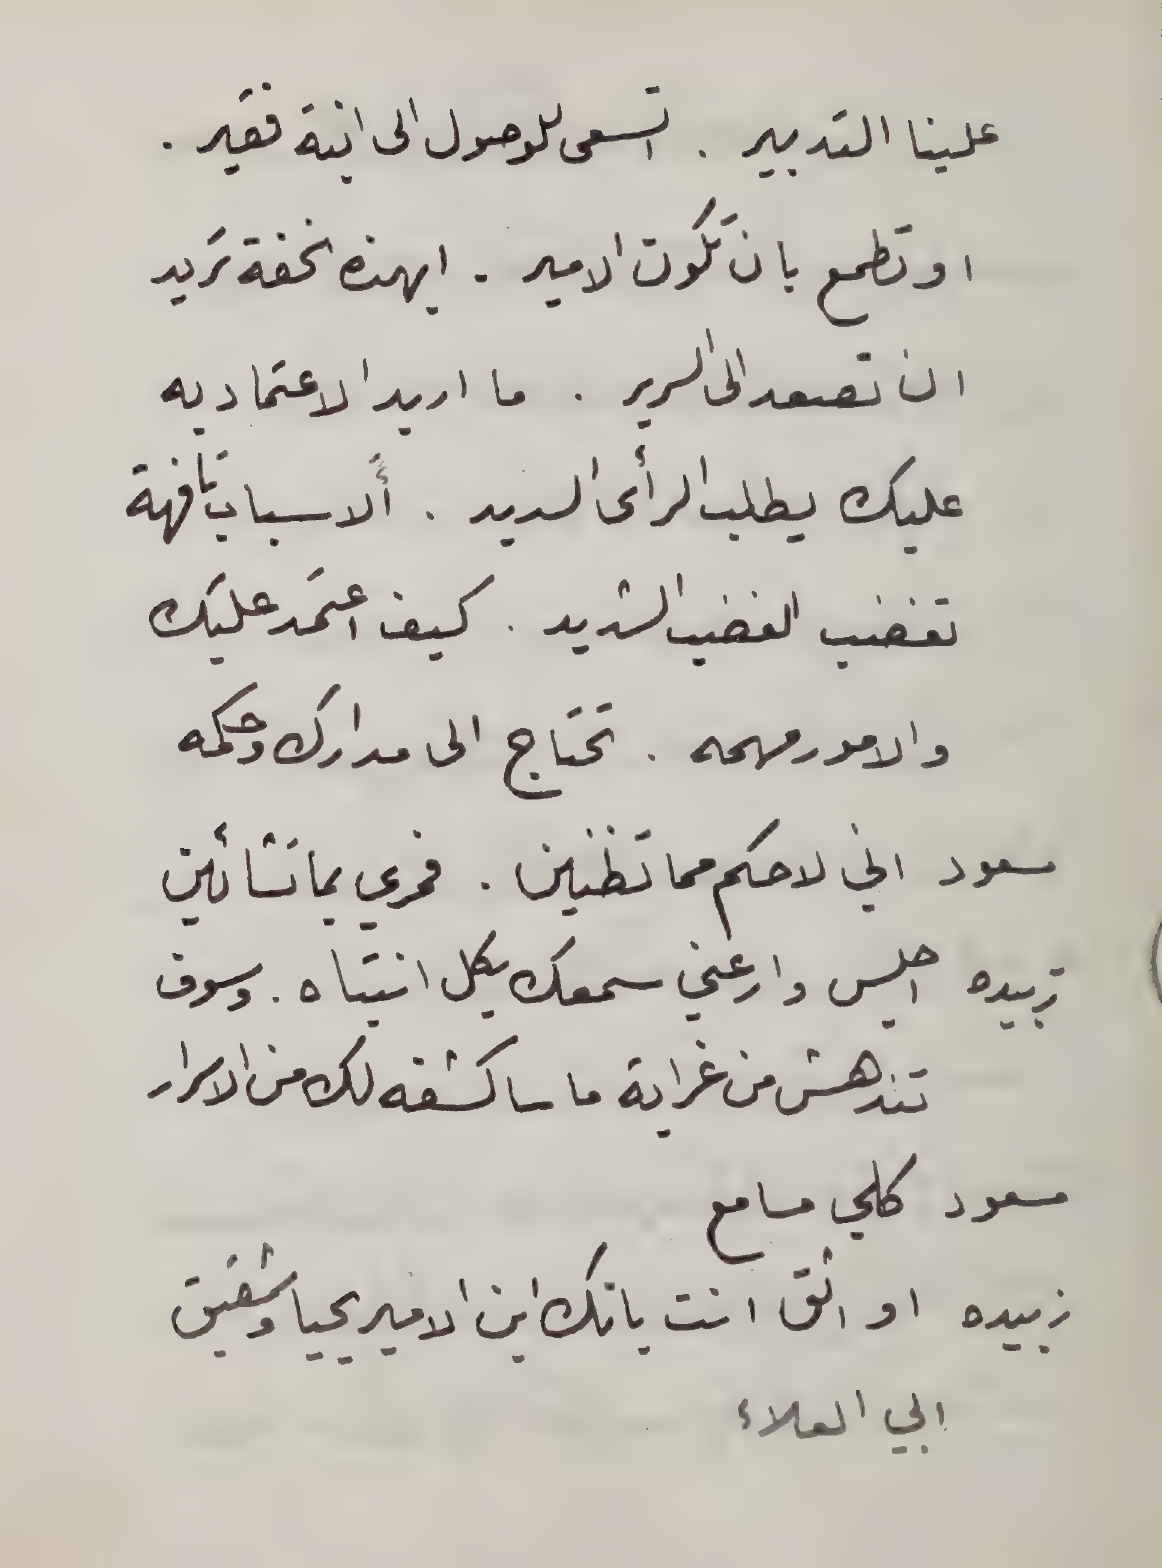 علينا التدبير . اتسعى للوصول الى ابنة فقير .
او تطمع بان تكون الامير . ابهذه الخفة تريد
ان تصعد الى السرير . ما اريد الاعتماد به
عليك يطلب الرأى السديد . ألاسباب تافهة
تغضب الغضب الشديد . كيف اعتمد عليك
والامور مهمه . تحتاج الى مدارك وحكمه
مسعود اني لاحكم مما تظنين . فمري بما تشائين
زبيده اجلس وارعني سمعك بكل انتباه . وسوف
تندهش من غرابة ما ساكشفه لك من الاسرار
مسعود كلي مسامع
زبيده او اثق انت بانك ابن الامير يحيا وشقيق
ابي العلاء